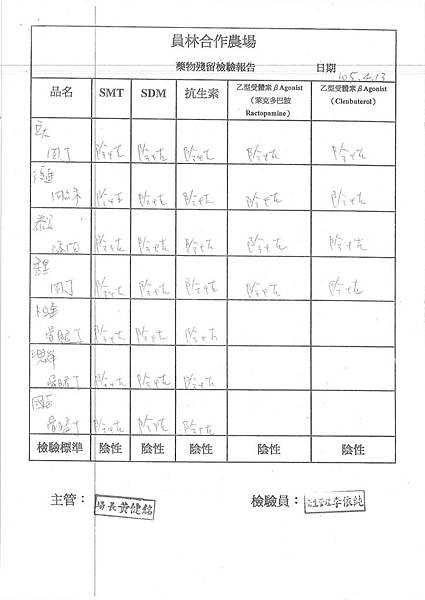 員林合作農場
藥物殘留檢驗報告 日期 105.4.13
品名 SMT SDM 抗生素 乙型受體素βAgonist (萊克多巴胺 Ractopamine) 乙型受體素βAgonist (Clenbuterol)
肉丁 陰性 陰性 陰性 陰性 陰性
陰性 陰性 陰性 陰性 陰性
陰性 陰性 陰性 陰性 陰性
肉丁 陰性 陰性 陰性 陰性 陰性
骨腿丁 陰性 陰性 陰性
骨腿丁 陰性 陰性 陰性
骨腿丁 陰性 陰性 陰性
檢驗標準 陰性 陰性 陰性 陰性 陰性
主管： 場長黃健銘 檢驗員： 李依純